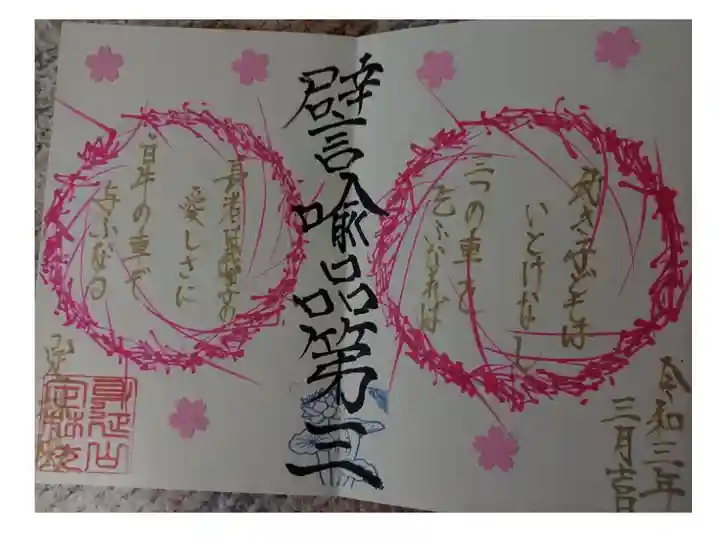 譬喩品第三
幼き子どもは
いとけなし
三つの車を
乞ふなれば
長者は我が子の
愛しさに
白牛の車ぞ
与ふなる
令和三年
三月吉日
身延山
定林坊